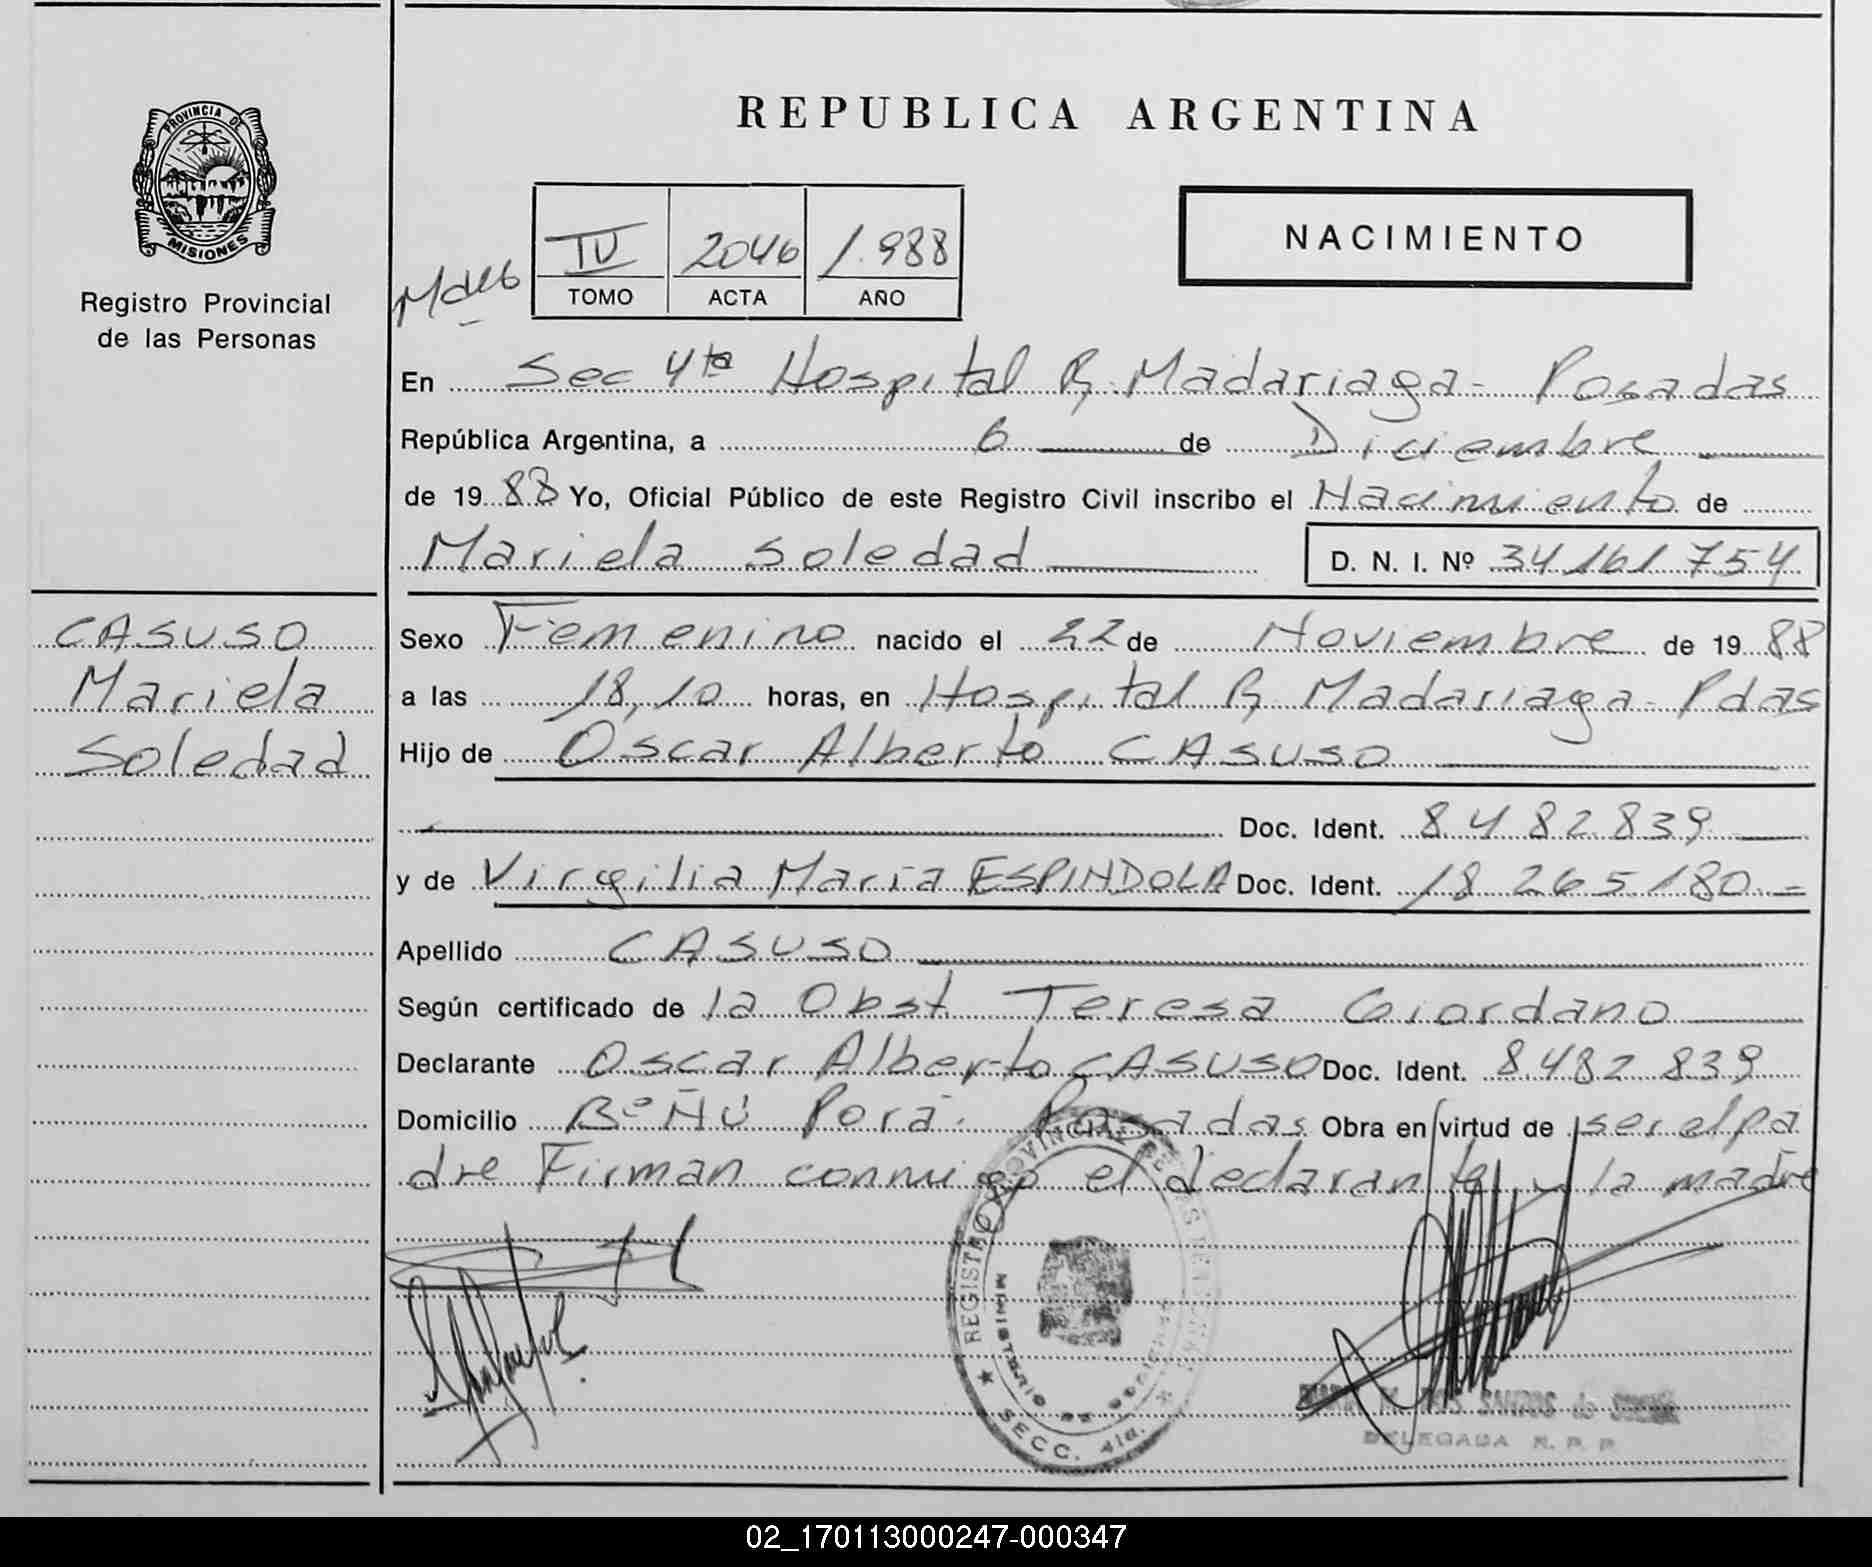 PROVINCIA DE
MISIONES
Registro Provincial
de las Personas
CASUSO
Mariela
Soledad
REPUBLICA ARGENTINA
IV 2046 1.988
TOMO ACTA AÑO
NACIMIENTO
En Sec 4ta Hospital R. Madariaga - Posadas
República Argentina, a 6 de Diciembre
de 1988 Yo, Oficial Público de este Registro Civil inscribo el Nacimiento de
Mariela Soledad D. N. I. Nº 34 161 754
Sexo Femenino nacido el 22 de Noviembre de 1988
a las 18,10 horas, en Hospital R. Madariaga - Pdas
Hijo de Oscar Alberto CASUSO
Doc. Ident. 8 482 839
y de Virgilia María ESPINDOLA Doc. Ident. 18 265 180 =
Apellido CASUSO
Según certificado de la Obst Teresa Giordano
Declarante Oscar Alberto CASUSO Doc. Ident. 8.482 839
Domicilio Bº ÑU Porá - Posadas Obra en virtud de ser el pa
dre Firman conmigo el declarante y la madre
REGISTRO PROVINCIAL DE LAS PERSONAS
MINISTERIO DE GOBIERNO
SECC. 4ta.
SANTOS de
DELEGADA R. P. P.
02_170113000247-000347